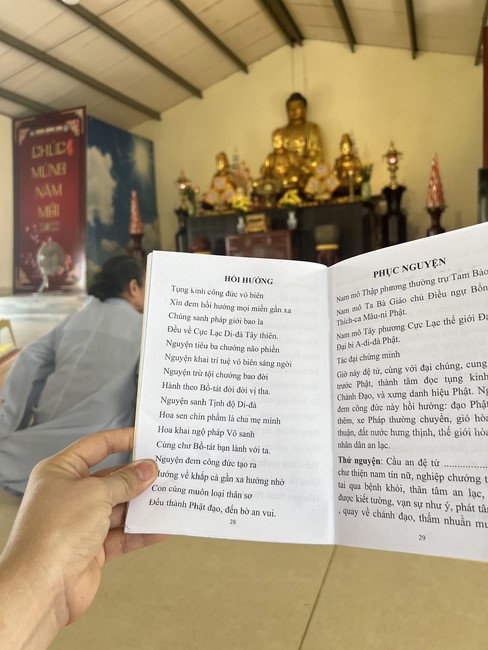 CHÚC
MỪNG
NĂM
MỚI
HỒI HƯỚNG
Tụng kinh công đức vô biên
Xin đem hồi hướng mọi miền gần xa
Chúng sanh pháp giới bao la
Đều về Cực Lạc Di-đà Tây thiên.
Nguyện tiêu ba chướng não phiền
Nguyện khai trí tuệ vô biên sáng ngời
Nguyện trừ tội chướng bao đời
Hành theo Bồ-tát đời đời vị tha.
Nguyện sanh Tịnh độ Di-đà
Hoa sen chín phẩm là cha mẹ mình
Hoa khai ngộ pháp Vô sanh
Cùng chư Bồ-tát bạn lành với ta.
Nguyện đem công đức tạo ra
Hướng về khắp cả gần xa hưởng nhờ
Con cùng muôn loại thân sơ
Đều thành Phật đạo, đến bờ an vui.
28
PHỤC NGUYỆN
Nam mô Thập phương thường trụ Tam Bảo
Nam mô Ta Bà Giáo chủ Điều ngự Bổn
Thích-ca Mâu-ni Phật.
Nam mô Tây phương Cực Lạc thế giới Đạ
Đại bi A-di-đà Phật.
Tác đại chứng minh
Giờ này đệ tử, cùng với đại chúng, cung
trước Phật, thành tâm đọc tụng kinh
Chánh Đạo, và xưng danh hiệu Phật. Ng
đem công đức này hồi hướng: đạo Phật
thêm, xe Pháp thường chuyển, gió hòa
thuận, đất nước hưng thịnh, thế giới hòa
nhân dân an lạc.
Thứ nguyện: Cầu an đệ tử ..................
chư thiện nam tín nữ, nghiệp chướng t
tai qua bệnh khỏi, thân tâm an lạc,
được kiết tường, vạn sự như ý, phát tâm
, quay về chánh đạo, thấm nhuần mu
29